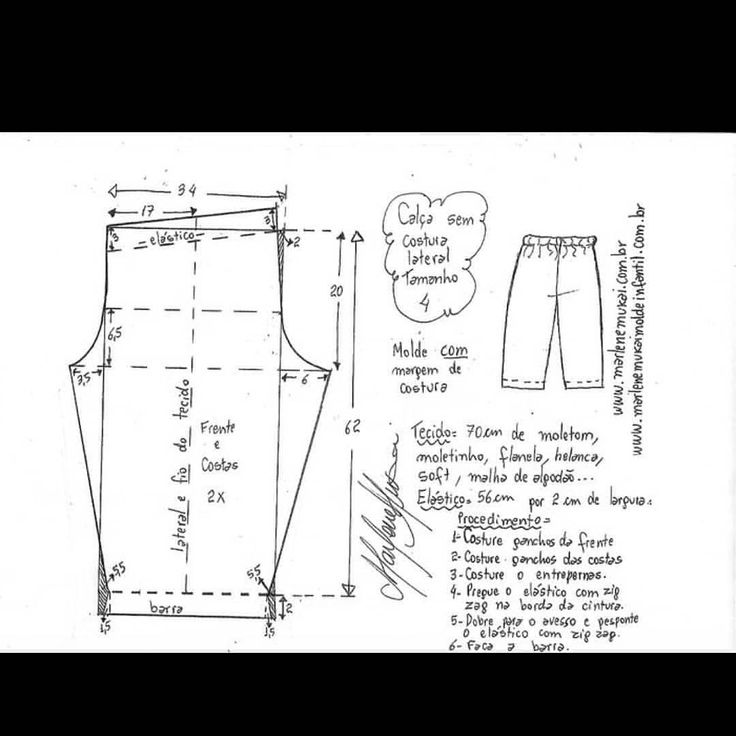 34
17
3
3
elástico
2
20
6,5
3,5
6
62
lateral e fio do tecido
Frente
e
Costas
2x
5,5
5,5
barra
2
1,5
1,5
Calça sem
costura
lateral
Tamanho
4
Molde com
margem de
costura
www.marlenemukai.com.br
www.marlenemukaimoldeinfantil.com.br
Tecido= 70cm de moletom,
moletinho, flanela, helanca,
soft, malha de algodão...
Elástico= 56cm por 2 cm de largura.
Procedimento=
1- Costure ganchos da frente
2- Costure ganchos das costas
3- Costure o entrepernas.
4- Pregue o elástico com zig
zag na borda da cintura.
5- Dobre para o avesso e pesponte
o elástico com zig zag.
6- Faça a barra.